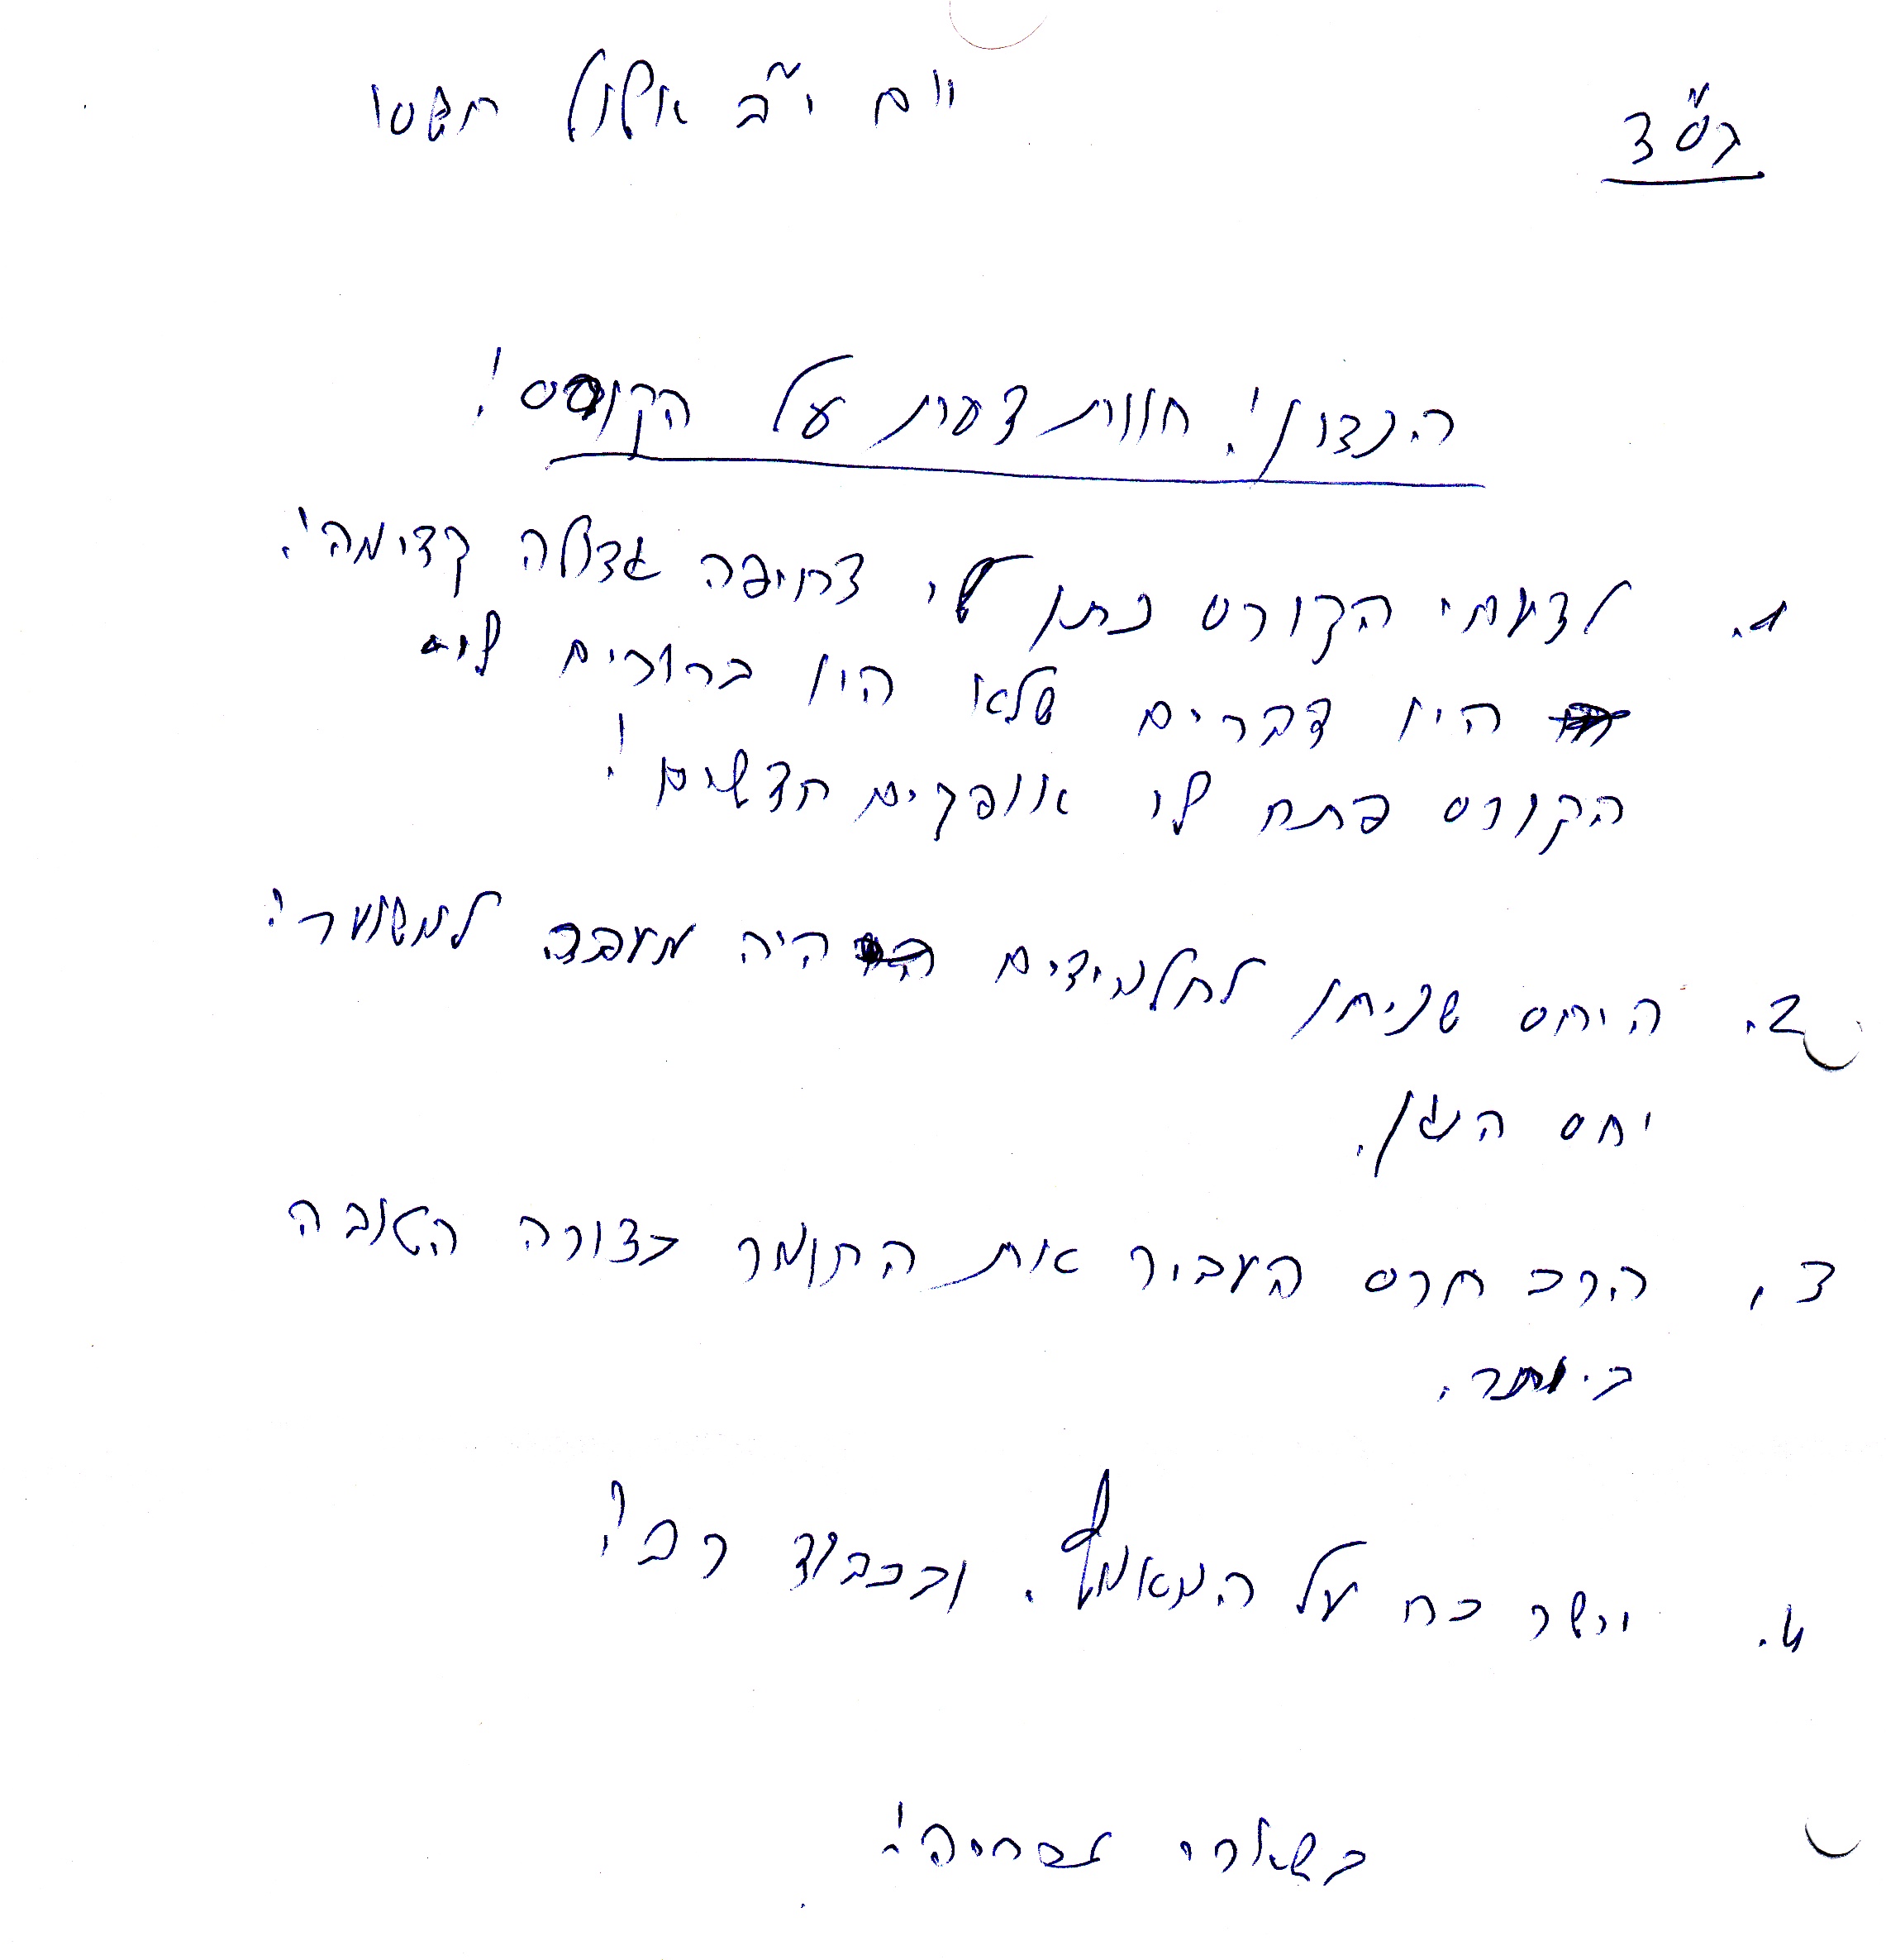 בס"ד
יום י"ב אלול תשסו
הנדון! חוות דעת על הקורס!
1. לדעתי הקורס נתן לי דחיפה גדולה קדימה!
היו דברים שלא היו ברורים לי
הקורס פתח לי אופקים חדשים!
2. היחס שניתן לתלמידים היה מעבר למשוער!
יחס הוגן.
3. הרב חרס העביר את החומר בצורה הטובה
ביותר.
4. יישר כח על המאמץ. ובכבוד רב!